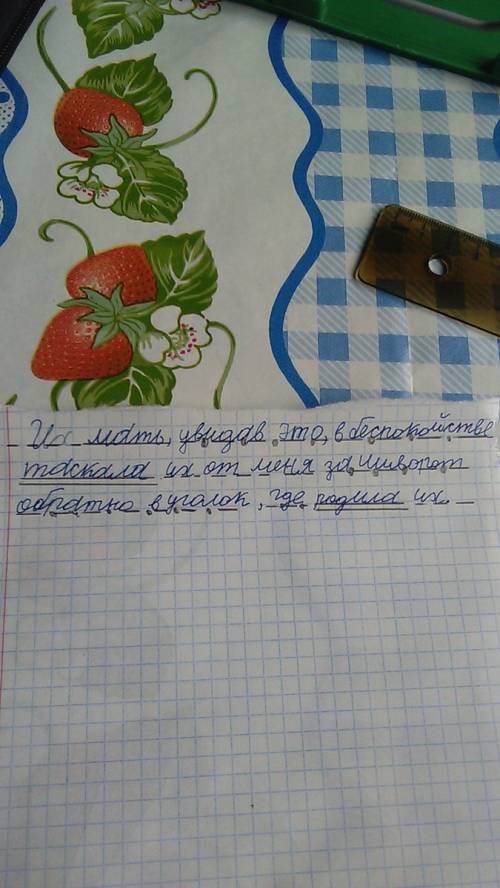 Их мать, увидав это, в беспокойстве
таскала их от меня за шиворот
обратно в уголок, где родила их.